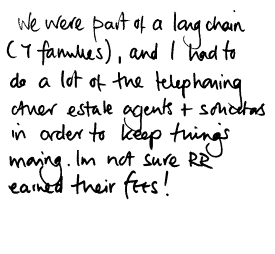 We were part of a long chain
(7 families), and I had to
do a lot of the telephoning
other estate agents + solicitors
in order to keep things
moving. Im not sure RR
earned their fees!